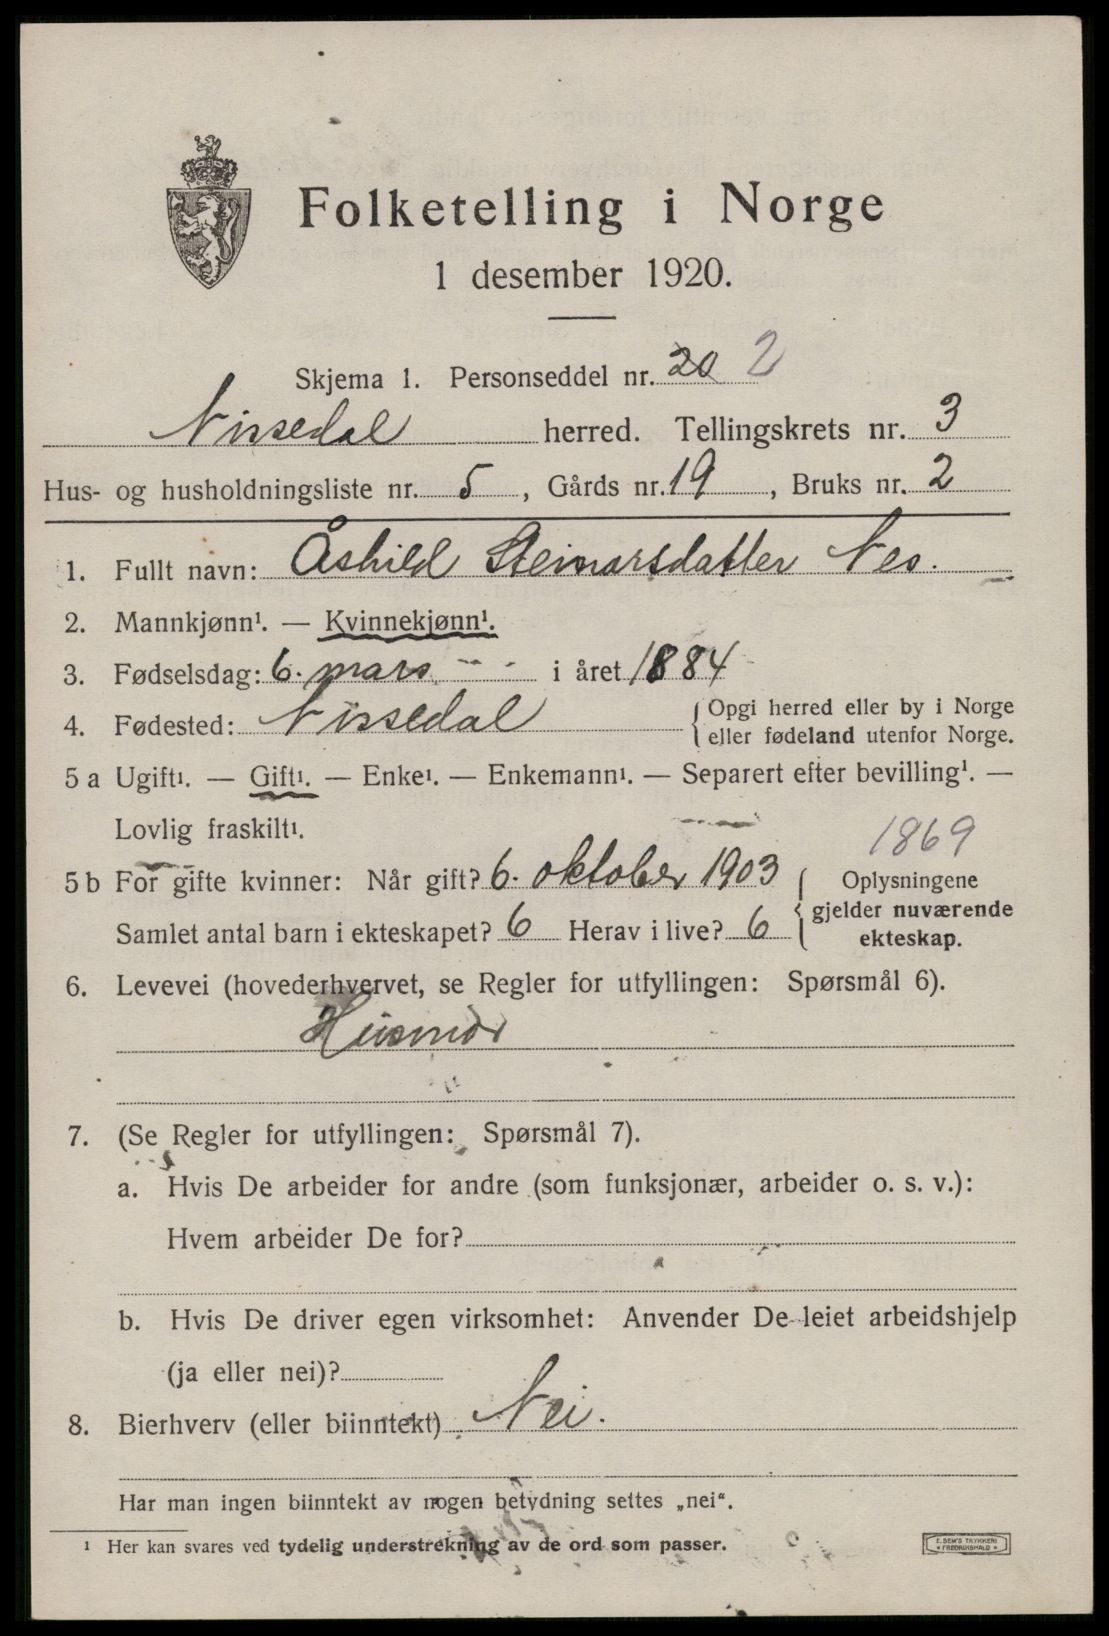 Folketelling i Norge
1 desember 1920.
Skjema 1. Personseddel nr. 20 2
Nissedal herred. Tellingskrets nr. 3
Hus- og husholdningsliste nr. 5, Gårds nr. 19, Bruks nr. 2
1. Fullt navn: Åshild Steinarsdatter Nes.
2. Mannkjønn¹. — Kvinnekjønn¹.
3. Fødselsdag: 6. mars i året 1884
4. Fødested: Nissedal
{ Opgi herred eller by i Norge
eller fødeland utenfor Norge.
5 a Ugift¹. — Gift¹. — Enke¹. — Enkemann¹. — Separert efter bevilling¹. —
Lovlig fraskilt¹.
1869
5 b For gifte kvinner: Når gift? 6. oktober 1903
Samlet antal barn i ekteskapet? 6 Herav i live? 6
{ Oplysningene
gjelder nuværende
ekteskap.
6. Levevei (hovederhvervet, se Regler for utfyllingen: Spørsmål 6).
Husmor
7. (Se Regler for utfyllingen: Spørsmål 7).
a. Hvis De arbeider for andre (som funksjonær, arbeider o. s. v.):
Hvem arbeider De for?
b. Hvis De driver egen virksomhet: Anvender De leiet arbeidshjelp
(ja eller nei)?
8. Bierhverv (eller biinntekt) Nei.
Har man ingen biinntekt av nogen betydning settes „nei“.
¹ Her kan svares ved tydelig understrekning av de ord som passer.
E. SEM'S TRYKKERI
* FREDRIKSHALD *